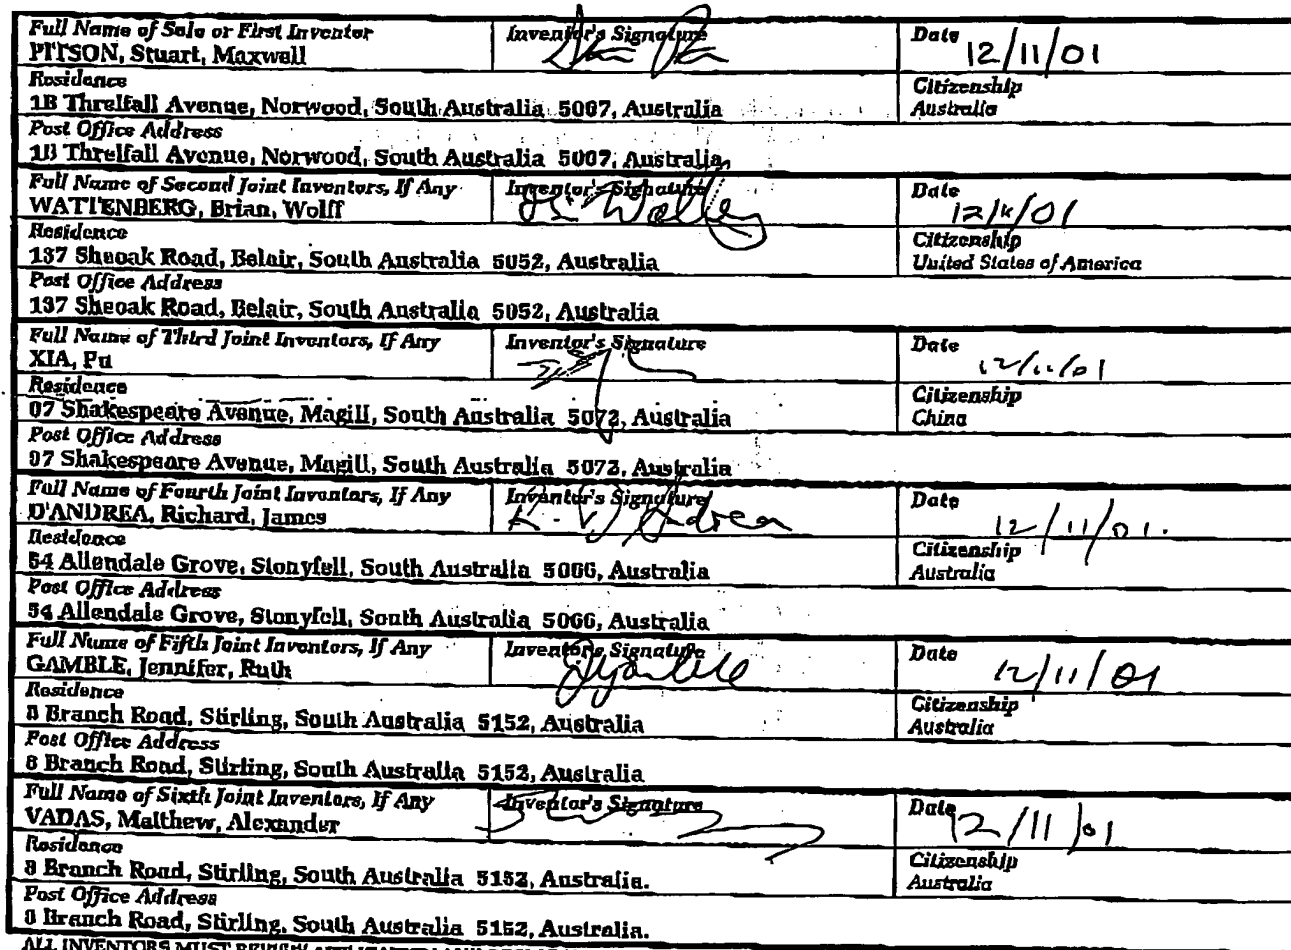 Full Name of Sole or First Inventor
PITSON, Stuart, Maxwell
Inventor's Signature
Date
12/11/01
Residence
1B Threlfall Avenue, Norwood, South Australia 5067, Australia
Citizenship
Australia
Post Office Address
1B Threlfall Avenue, Norwood, South Australia 5067, Australia
Full Name of Second Joint Inventors, If Any
WATTENBERG, Brian, Wolff
Inventor's Signature
Date
12/11/01
Residence
137 Sheoak Road, Belair, South Australia 5052, Australia
Citizenship
United States of America
Post Office Address
137 Sheoak Road, Belair, South Australia 5052, Australia
Full Name of Third Joint Inventors, If Any
XIA, Pu
Inventor's Signature
Date
12/11/01
Residence
Shakespeare Avenue, Magill, South Australia 5072, Australia
Citizenship
China
Post Office Address
Shakespeare Avenue, Magill, South Australia 5072, Australia
Full Name of Fourth Joint Inventors, If Any
D'ANDREA, Richard, James
Inventor's Signature
R. D'Andrea
Date
12/11/01.
Residence
54 Allendale Grove, Stonyfell, South Australia 5066, Australia
Citizenship
Australia
Post Office Address
54 Allendale Grove, Stonyfell, South Australia 5066, Australia
Full Name of Fifth Joint Inventors, If Any
GAMBLE, Jennifer, Ruth
Inventor's Signature
Date
12/11/01
Residence
8 Branch Road, Stirling, South Australia 5152, Australia
Citizenship
Australia
Post Office Address
8 Branch Road, Stirling, South Australia 5152, Australia
Full Name of Sixth Joint Inventors, If Any
VADAS, Mathew, Alexander
Inventor's Signature
Date
12/11/01
Residence
8 Branch Road, Stirling, South Australia 5152, Australia.
Citizenship
Australia
Post Office Address
8 Branch Road, Stirling, South Australia 5152, Australia.
ALL INVENTORS MUST REVIEW